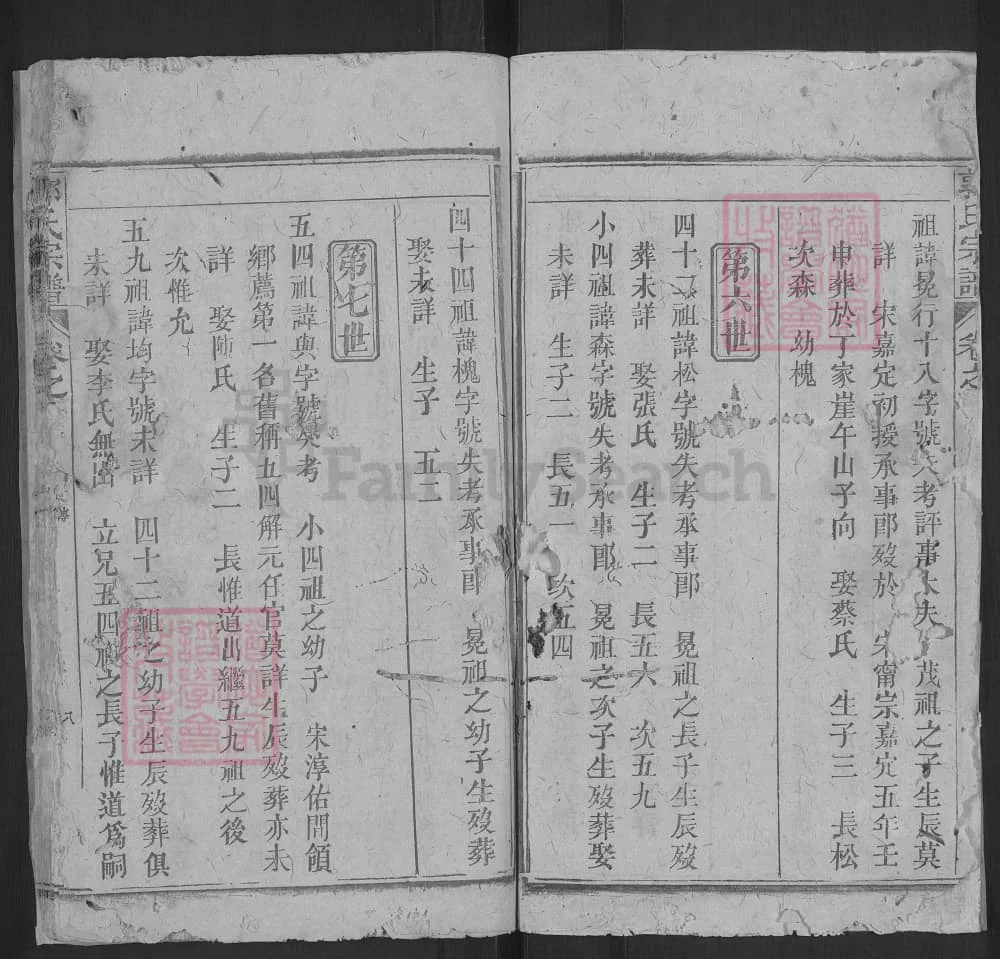 祖諱冕行十八字號失考評事大夫 茂祖之子生辰莫
詳 宋嘉定初授承事郎歿於 宋甯宗嘉定五年壬
申葬於丁家崖午山子向 娶蔡氏 生子三 長松
次森 幼槐
第六世
四十二祖諱松字號失考承事郎 冕祖之長子生辰歿
葬未詳 娶張氏 生子二 長五六 次五九
小四祖諱森字號失考承事郎 冕祖之次子生歿葬娶
未詳 生子二 長五一 次五四
四十四祖諱槐字號失考承事郎 冕祖之幼子生歿葬
娶未詳 生子 五三
第七世
五四祖諱與字號失考 小四祖之幼子 宋淳佑間領
鄉薦第一名舊稱五四解元任官莫詳生辰歿葬亦未
詳 娶陳氏 生子二 長惟道出繼五九祖之後
次惟允
五九祖諱均字號未詳 四十二祖之幼子生辰歿葬俱
未詳 娶李氏無出 立兄五四祖之長子惟道為嗣
郭氏宗譜 卷之
FamilySearch